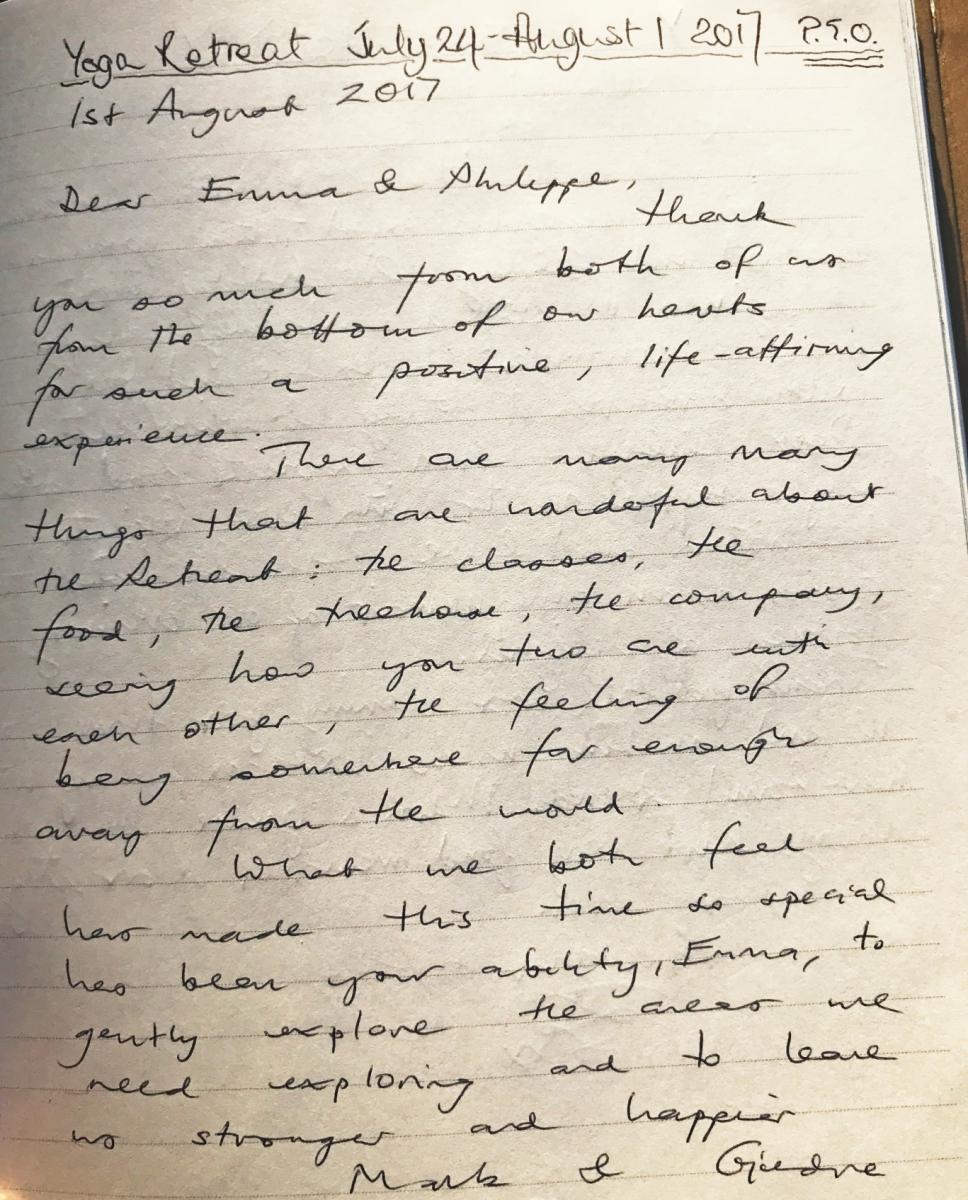 Yoga Retreat July 24-August 1 2017 P.T.O.
1st August 2017
Dear Emma & Philippe,
thank
you so much from both of us
from the bottom of our hearts
for such a positive, life-affirming
experience.
There are many many
things that are wonderful about
the Retreat: the classes, the
food, the treehouse, the company,
seeing how you two are with
each other, the feeling of
being somewhere far enough
away from the world.
What we both feel
has made this time so special
has been your ability, Emma, to
gently explore the areas we
need exploring and to leave
us stronger and happier
Mark & Giedre